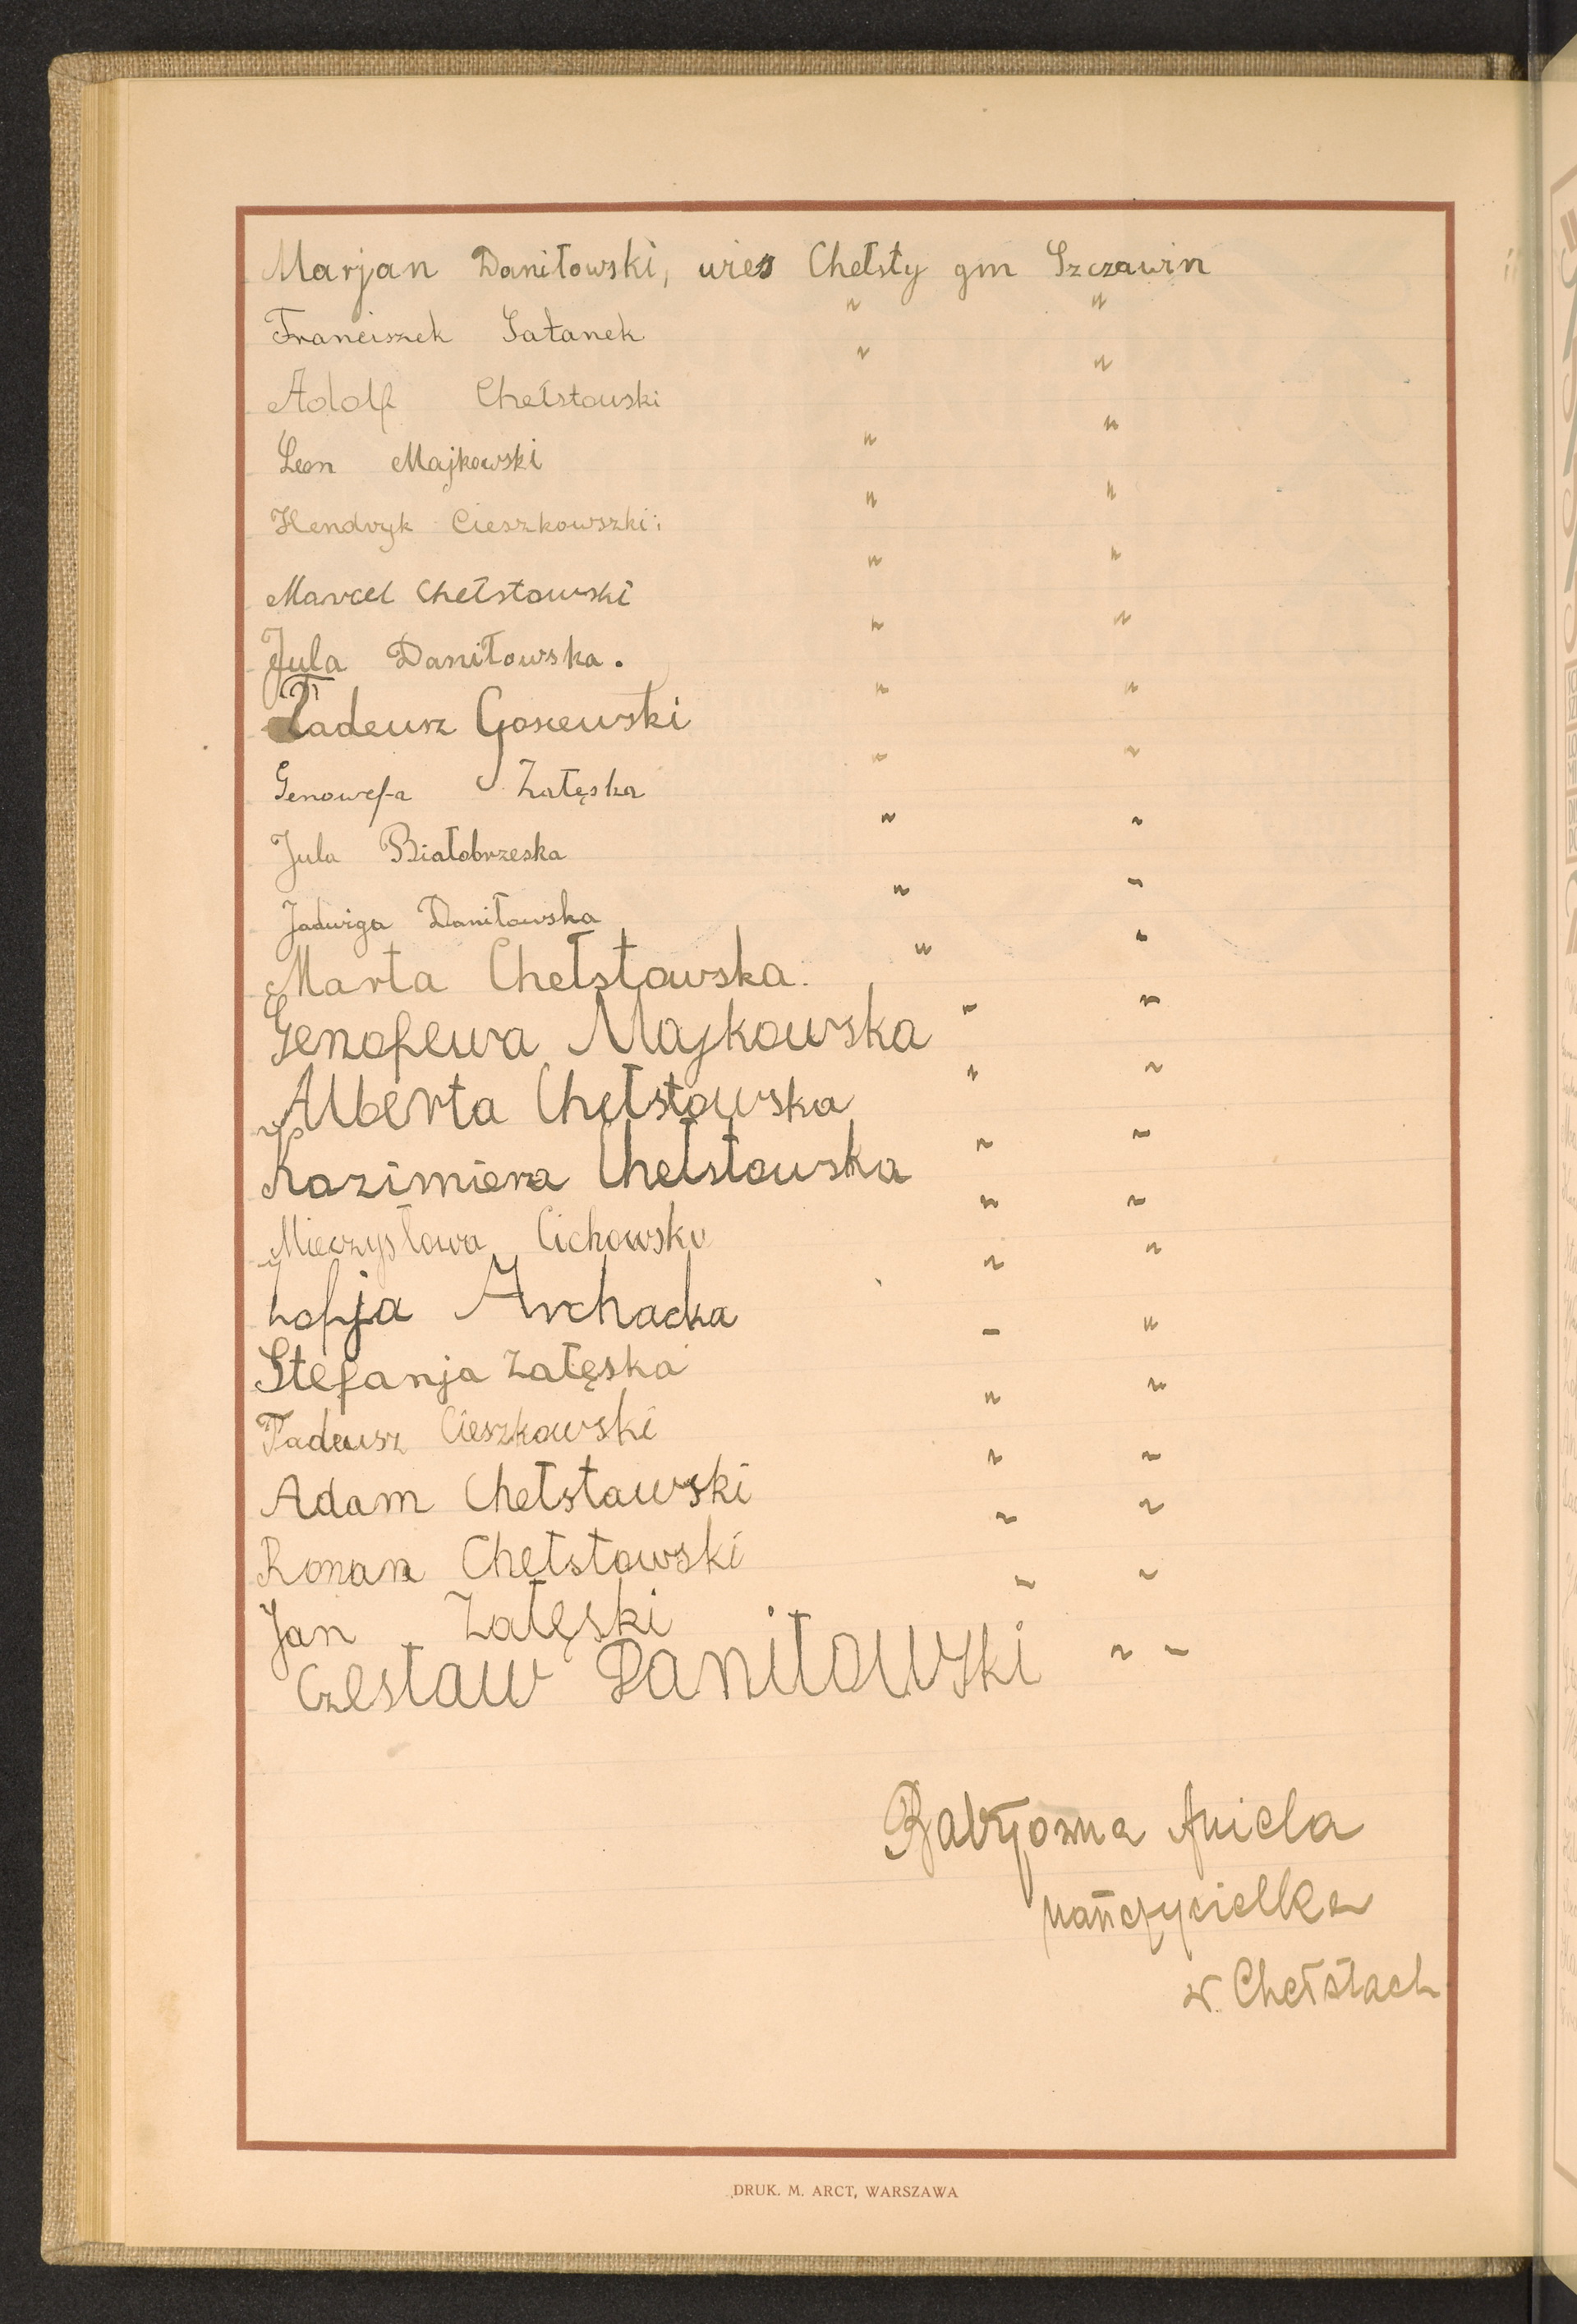 Marjan Daniłowski, wieś Chełsty gm Szczawin
Franciszek Sałanek " "
Adolf Chełstowski " "
Leon Majkowski " "
Hendryk Cieszkowszki " "
Marcel Chełstowski " "
Jula Daniłowska. " "
Tadeusz Gosiewski " "
Genowefa Załęska " "
Jula Białobrzeska " "
Jadwiga Daniłowska " "
Marta Chełstowska. " "
Genofewa Majkowska " "
Alberta Chełstowska " "
Kazimiera Chełstowska " "
Mieczysława Cichowska " "
Zofja Archacka " "
Stefanja Załęska " "
Tadeusz Cieszkowski " "
Adam Chełstawski " "
Roman Chełstowski " "
Jan Załęski " "
Czesław Daniłowski " "
Aniela
nauczycielka
w Chełstach
DRUK. M. ARCT, WARSZAWA